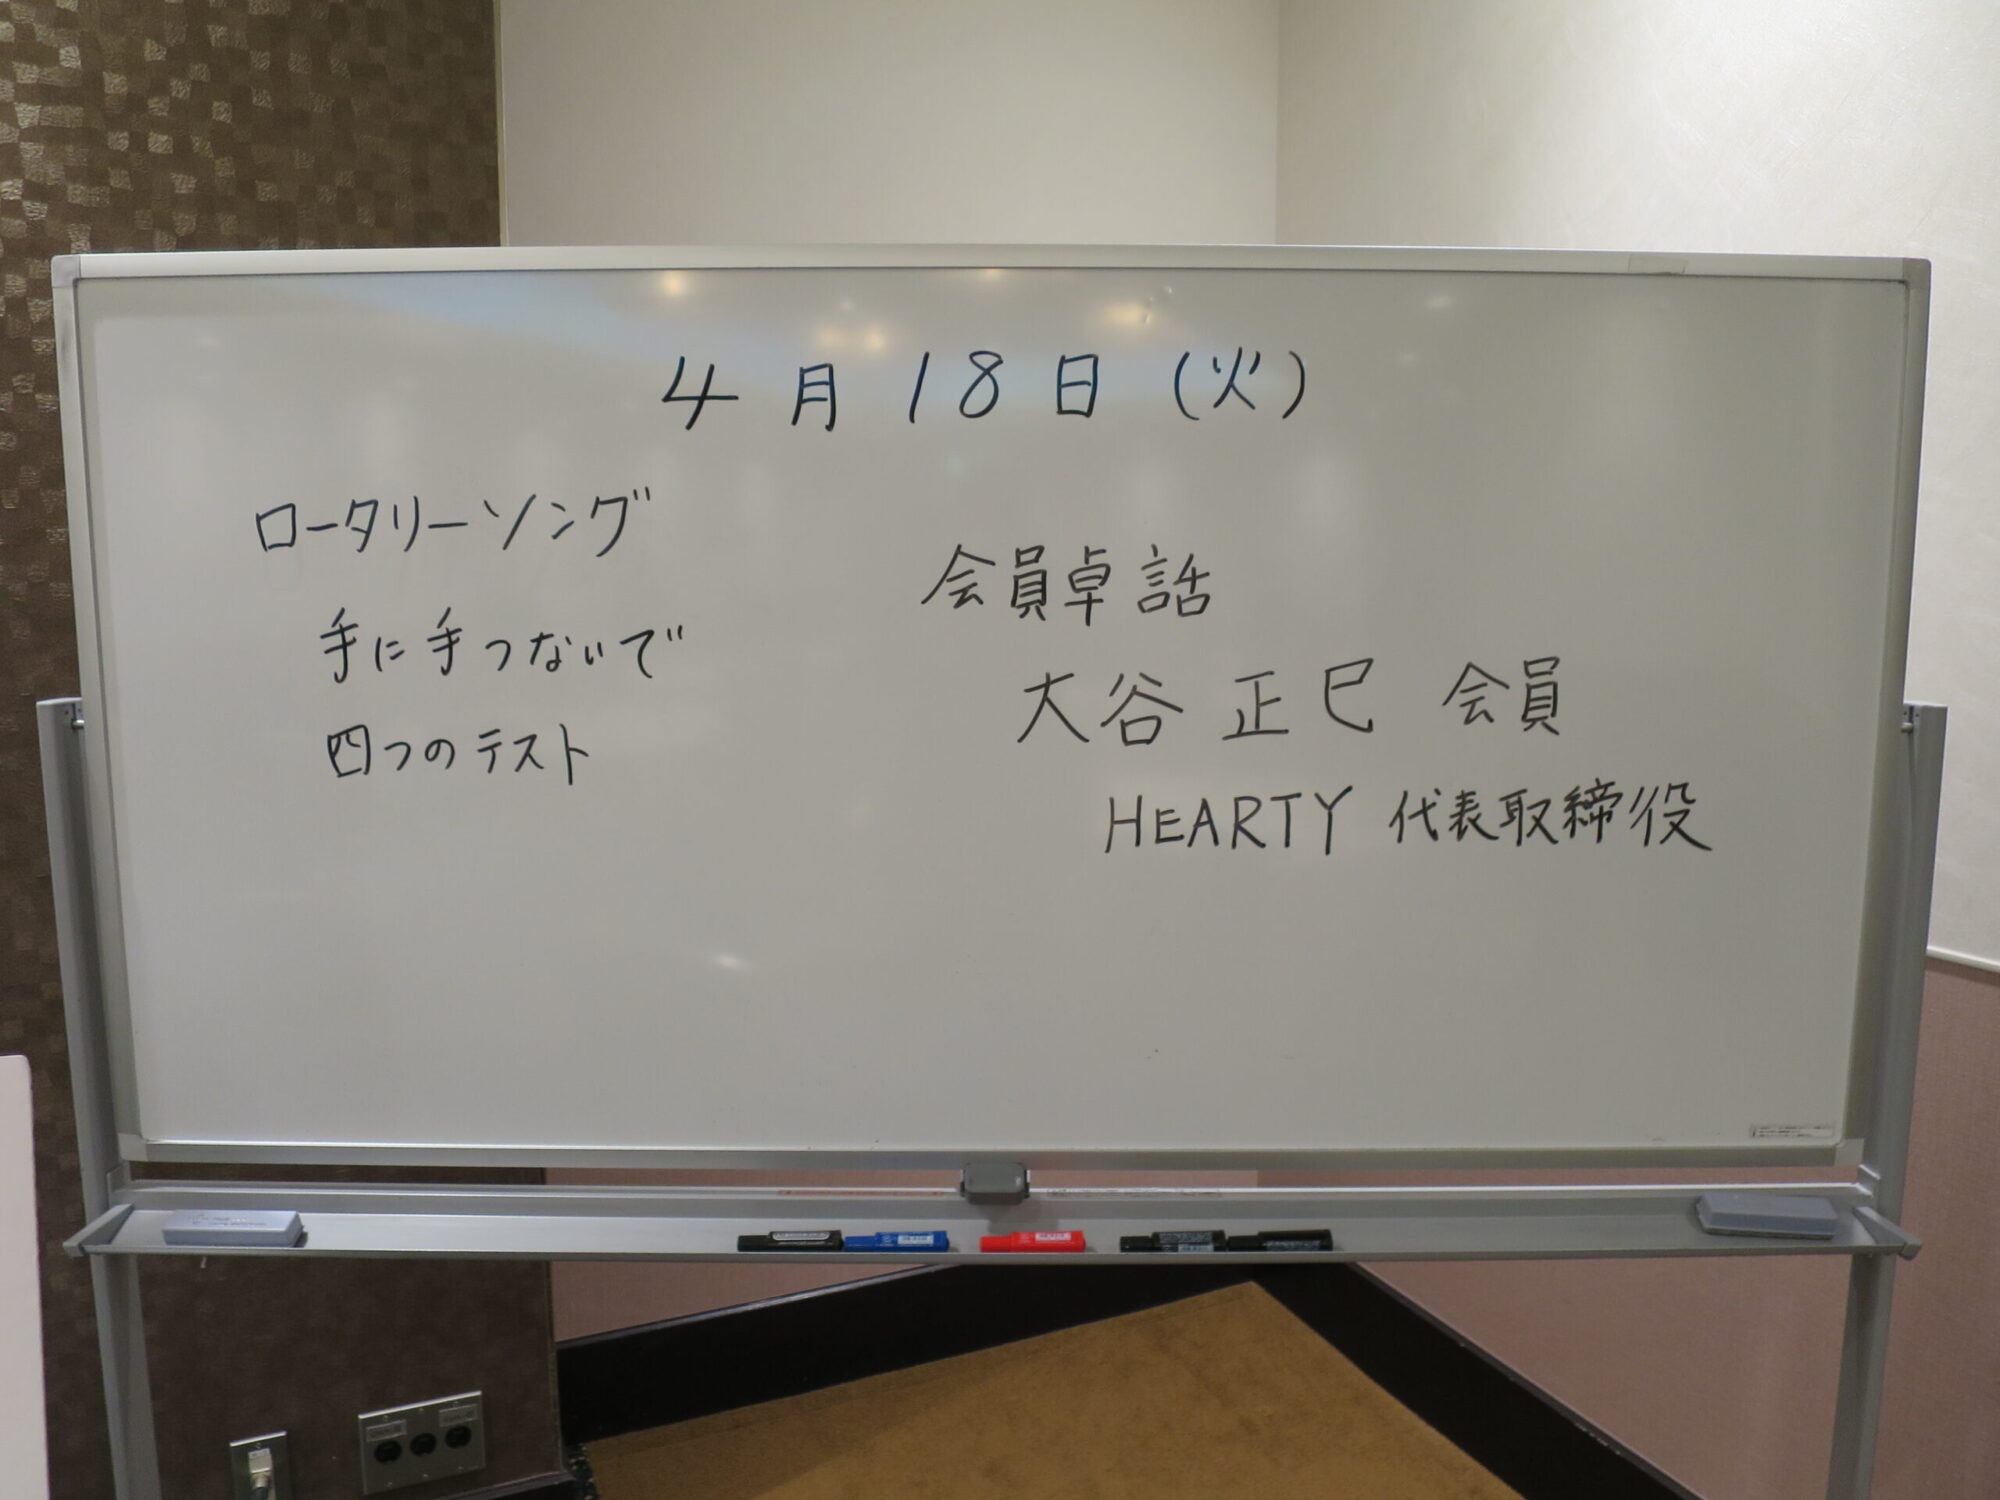 4月18日(火)
ロータリーソング
手に手つないで
四つのテスト
会員卓話
大谷 正巳 会員
HEARTY 代表取締役